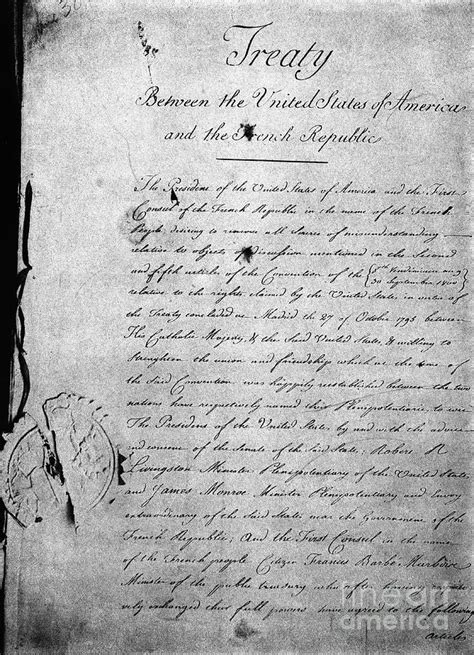 Treaty
Between the United States of America
and the French Republic
The President of the United States of America and the First
Consul of the French Republic in the name of the French
People desiring to remove all Source of misunderstanding
relative to objects of discussion mentioned in the Second
and fifth articles of the Convention of the
30 September 1800
relative to the rights claimed by the United States in virtue of
the Treaty concluded at Madrid the 27 of October 1795 between
His Catholic Majesty, & the Said United States, & willing to
Strengthen the union and friendship which at the time of
the Said Convention was happily reestablished between the two
nations have respectively named their Plenipotentiaries to wit
The President of the United States, by and with the advice
and consent of the Senate of the Said States; Robert R
Livingston Minister Plenipotentiary of the United States
and James Monroe Minister Plenipotentiary and Envoy
extraordinary of the Said States near the Government of the
French Republic; And the First Consul in the name
of the French people, Citizen Francis Barbé Marbois
Minister of the public treasury who after having
ively exchanged their full powers have agreed to the following
articles
fine art
america